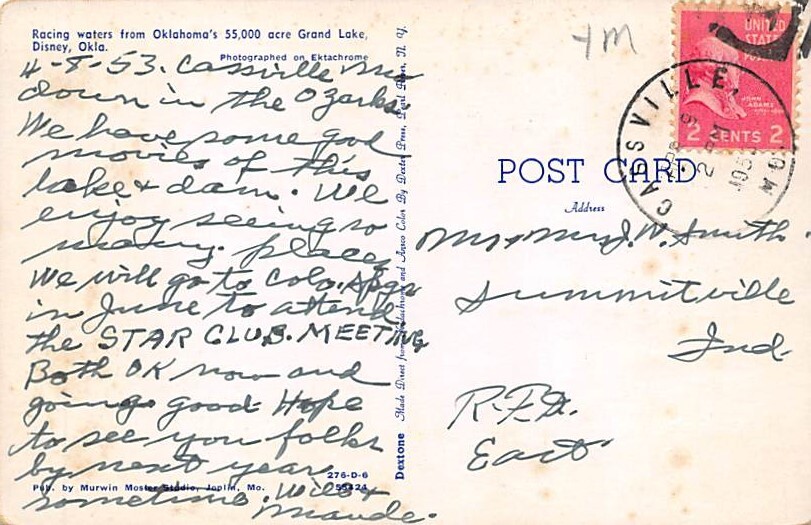 Racing waters from Oklahoma's 55,000 acre Grand Lake,
Disney, Okla.
Photographed on Ektachrome
4-8-53. Cassville Mo
down in the Ozarks.
We have some good
movies of this
lake + dam. We
enjoy seeing so
many places
We will go to Colo. Spgs
in June to attend
the STAR CLUB. MEETING
Both OK now and
going good Hope
to see you folks
by next year
sometime. Will +
Maude.
276-D-6
55424
Pub. by Murwin Mosler Studio, Joplin, Mo.
Dextone Made Direct from Kodachrome and Ansco Color By Dexter Press, Pearl River, N. Y.
POST CARD
Address
Mr + Mrs J. W. Smith.
Summitville
Ind.
R.F.D.
East
UNITED
STATES
JOHN
ADAMS
2 CENTS 2
CASSVILLE,
MO.
1953